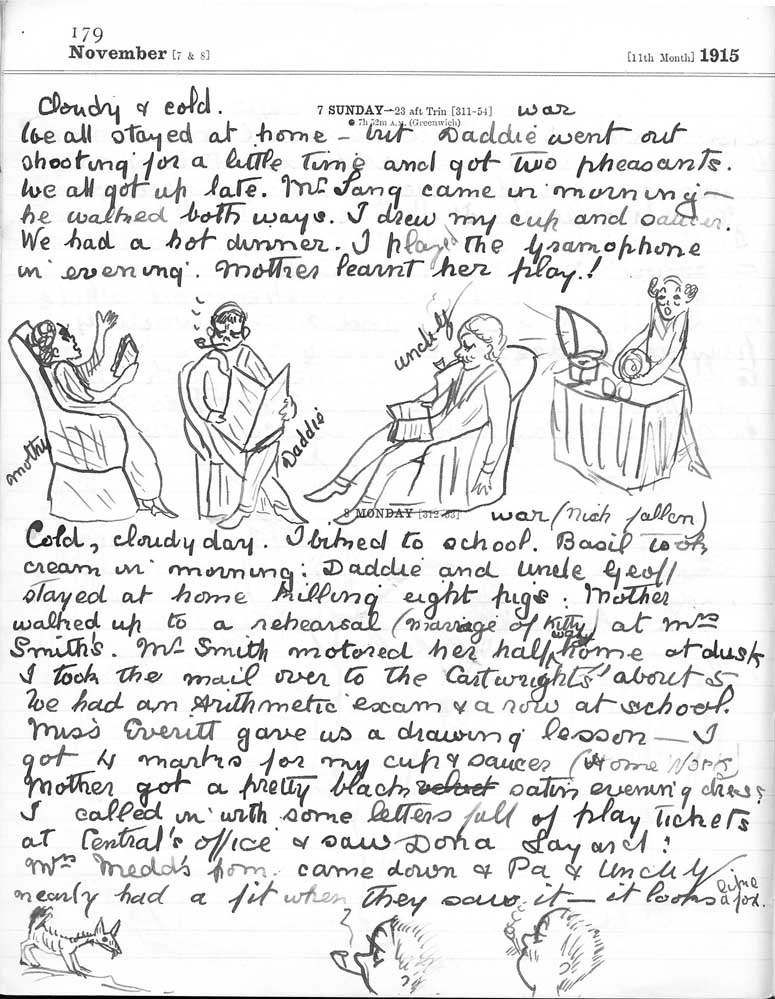 179
November [7 & 8] [11th Month] 1915
Cloudy & cold. 7 SUNDAY—23 aft Trin [311-54] war
● 7h 52m A.M. (Greenwich)
We all stayed at home – but Daddie went out
shooting for a little time and got two pheasants.
We all got up late. Mr Lang came in morning –
he walked both ways. I drew my cup and saucer.
We had a hot dinner. I played the gramophone
in evening. Mother learnt her play!
mother
Daddie
uncly
8 MONDAY [312-53] war (Nish fallen)
Cold, cloudy day. I biked to school. Basil took
cream in morning. Daddie and Uncle Geoff
stayed at home killing eight pigs. Mother
walked up to a rehearsal (Marriage of Kitty) at Mrs
Smith's. Mr Smith motored her half way home at dusk
I took the mail over to the Cartwrights' about 5
We had an Arithmetic exam & a row at school.
Miss Everitt gave us a drawing lesson — I
got 4 marks for my cup & saucer (Home Work)
Mother got a pretty black velvet satin evening dress!
I called in with some letters full of play tickets
at Central's office & saw Dona Layard!
Mrs Medd's pom. came down & Pa & Uncly
nearly had a fit when they saw it – it looks like a fox.